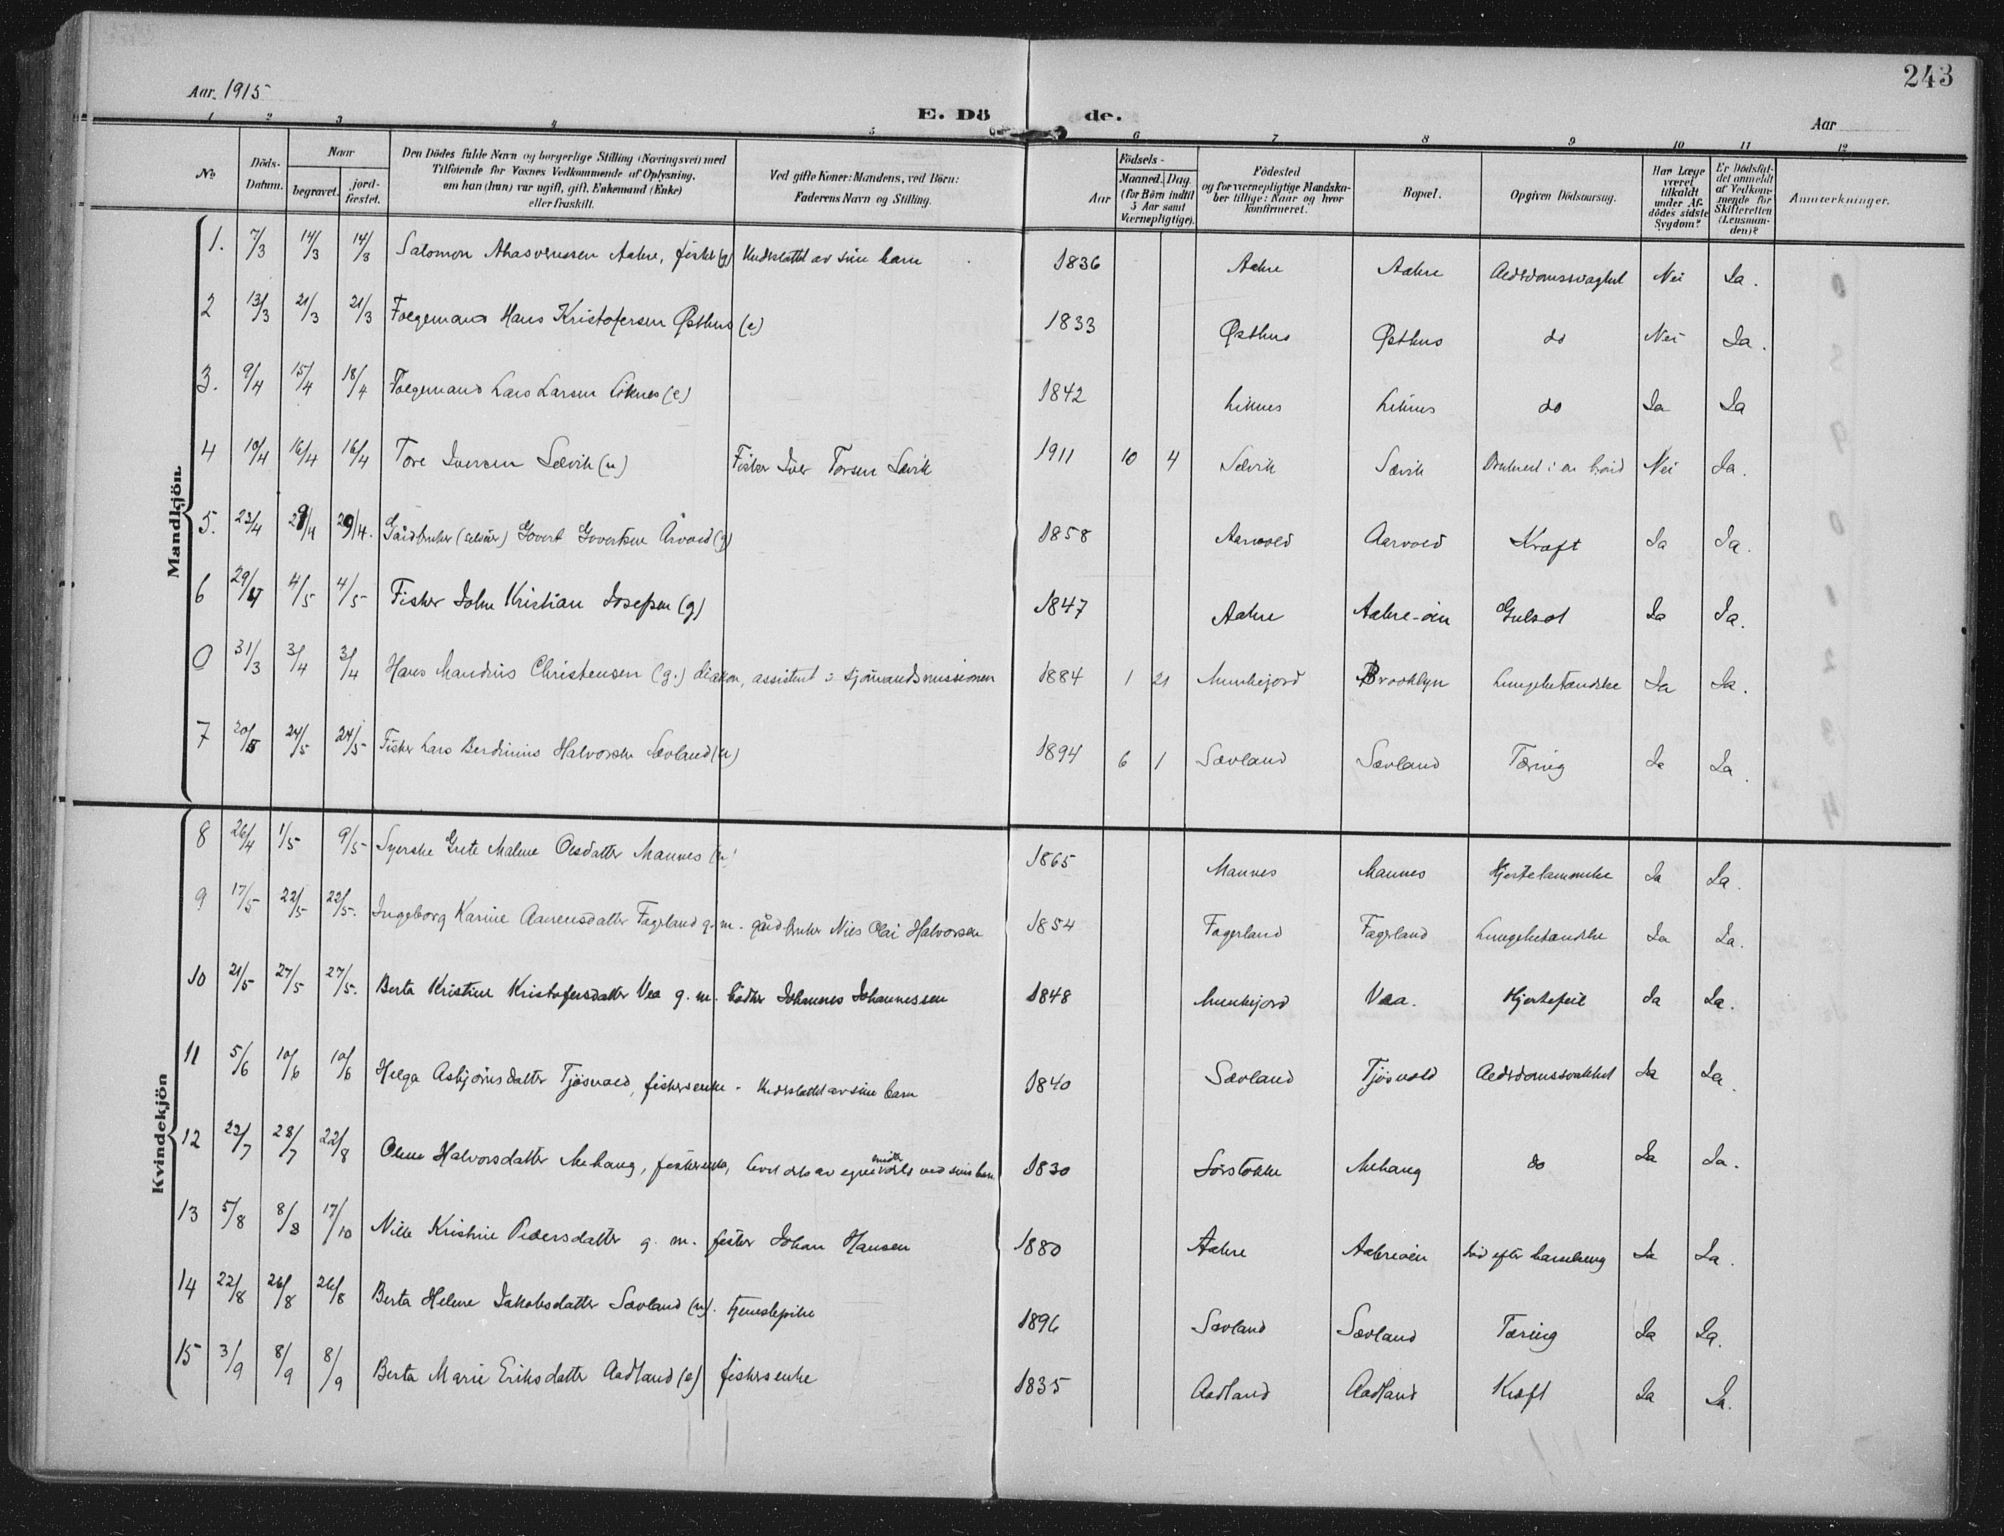 243
Aar. 1915
E. Dö de.
Aar
1 2 3 4 5 6 7 8 9 10 11 12
No.
Döds-Datum.
Naar
begravet.
jord-fæstet.
Den Dödes fulde Navn og borgerlige Stilling (Næringsvei) med
Tilföiende for Voxnes Vedkommende af Oplysning,
om han (hun) var ugift, gift, Enkemand (Enke)
eller fraskilt.
Ved gifte Koner: Mandens, ved Börn:
Faderens Navn og Stilling.
Födsels-
Aar
Maaned. Dag
(for Börn indtil
5 Aar samt
Værnepligtige).
Födested
og for værnepligtige Mandska-
ber tillige: Naar og hvor
konfirmeret.
Bopæl.
Opgiven Dödsaarsag.
Har Læge
været
tilkaldt
under Af-
dödes sidste
Sygdom?
Er Dödsfal-
det anmeldt
af Vedkom-
mende for
Skifteretten
(Lensman-
den)?
Anmærkninger.
Mandkjön.
1. 7/3 14/3 14/3 Salomon Ahasverussen Aakre, fisker (g) Underholdt av sine barn 1836 Aakre Aakre Alderdomssvaghet Nei Ja.
2 13/3 21/3 21/3 Folgemand Hans Kristofersen Østhus (e) 1833 Østhus Østhus do Nei Ja.
3. 9/4 15/4 18/4 Folgemand Lars Larsen Liknes (e) 1842 Liknes Liknes do Ja Ja
4 10/4 16/4 16/4 Tore Iversen Sævik (u) Fisker Iver Torsen Sævik 1911 10 4 Sævik Sævik Druknet i en brønd Nei Ja.
5. 23/4 29/4 29/4. Gårdbruker (selveier) Govert Govertsen Årvold (g) 1858 Aarvold Aarvold Kræft Ja Ja.
6 29/4 4/5 4/5 Fisker John Kristian Josefsen (g) 1847 Aakre Aakre-øen Gulsot Ja Ja.
0 31/3 3/4 3/4 Hans Mandius Christensen (g.) diakon, assistent i sjømandsmissionen 1884 1 21 Munkejord Brooklyn Lungebetændelse Ja Ja.
7 20/5 24/5 24/5 Fisker Lars Berdinius Halvorsen Sævland (u) 1894 6 1 Sævland Sævland Tæring Ja Ja.
Kvindekjön
8 26/4 1/5 9/5 Syerske Grete Malene Olsdatter Mannes (u) 1865 Mannes Mannes Hjertelammelse Ja Ja.
9 17/5 22/5 22/5. Ingeborg Karine Aanensdatter Fagerland g. m. gårdbruker Nils Olai Halvorsen 1854 Fagerland Fagerland Lungebetændelse Ja Ja.
10 21/5 27/5 27/5. Berta Kristine Kristofersdatter Vea g. m. bødker Johannes Johannessen 1848 Munkejord Vea. Hjertefeil Ja Ja.
11 5/6 10/6 10/6 Helga Asbjørnsdatter Tjøsvold, fiskerenke - Underholdt av sine barn 1840 Sævland Tjøsvold Alderdomssvakhet Ja Ja.
12 23/7 28/7 22/8 Oline Halvorsdatter Mehaug, fiskerenke, levet dels av egne midler dels ved sine barn 1830 Sørstokke Mehaug do Ja Ja.
13 5/8 8/8 17/10 Nille Kristine Pedersdatter g. m. fisker Johan Hansen 1880 Aakre Aakreøen Død efter barselseng Ja Ja.
14 22/8 26/8 26/8 Berta Helene Jakobsdatter Sævland (u). tjenestepike 1896 Sævland Sævland Tæring Ja Ja.
15 3/9 8/9 8/9 Berta Marie Eriksdatter Aadland (e) fiskerenke 1835 Aadland Aadland Kræft Ja Ja.